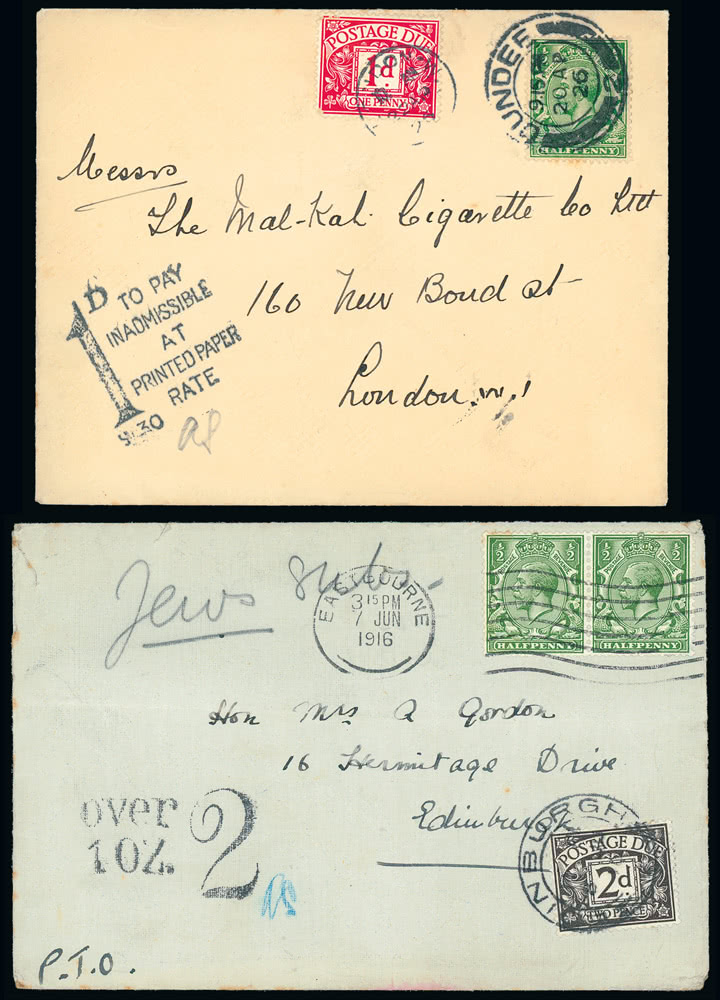 POSTAGE DUE
1d
ONE PENNY
DUNDEE
9.15 AM
20 AP
26
HALFPENNY
Messrs
The Mal-Kah Cigarette Co Ltd
160 New Bond St
London. W.1
1D
TO PAY
INADMISSIBLE
AT
PRINTED PAPER
RATE
30
EASTBOURNE
3 15 PM
7 JUN
1916
½ ½
½ ½
HALFPENNY
HALFPENNY
Hon Mrs A Gordon
16 Hermitage Drive
Edinburgh
over
1 oz.
2
EDINBURGH
POSTAGE DUE
2d
TWO PENCE
P.T.O.